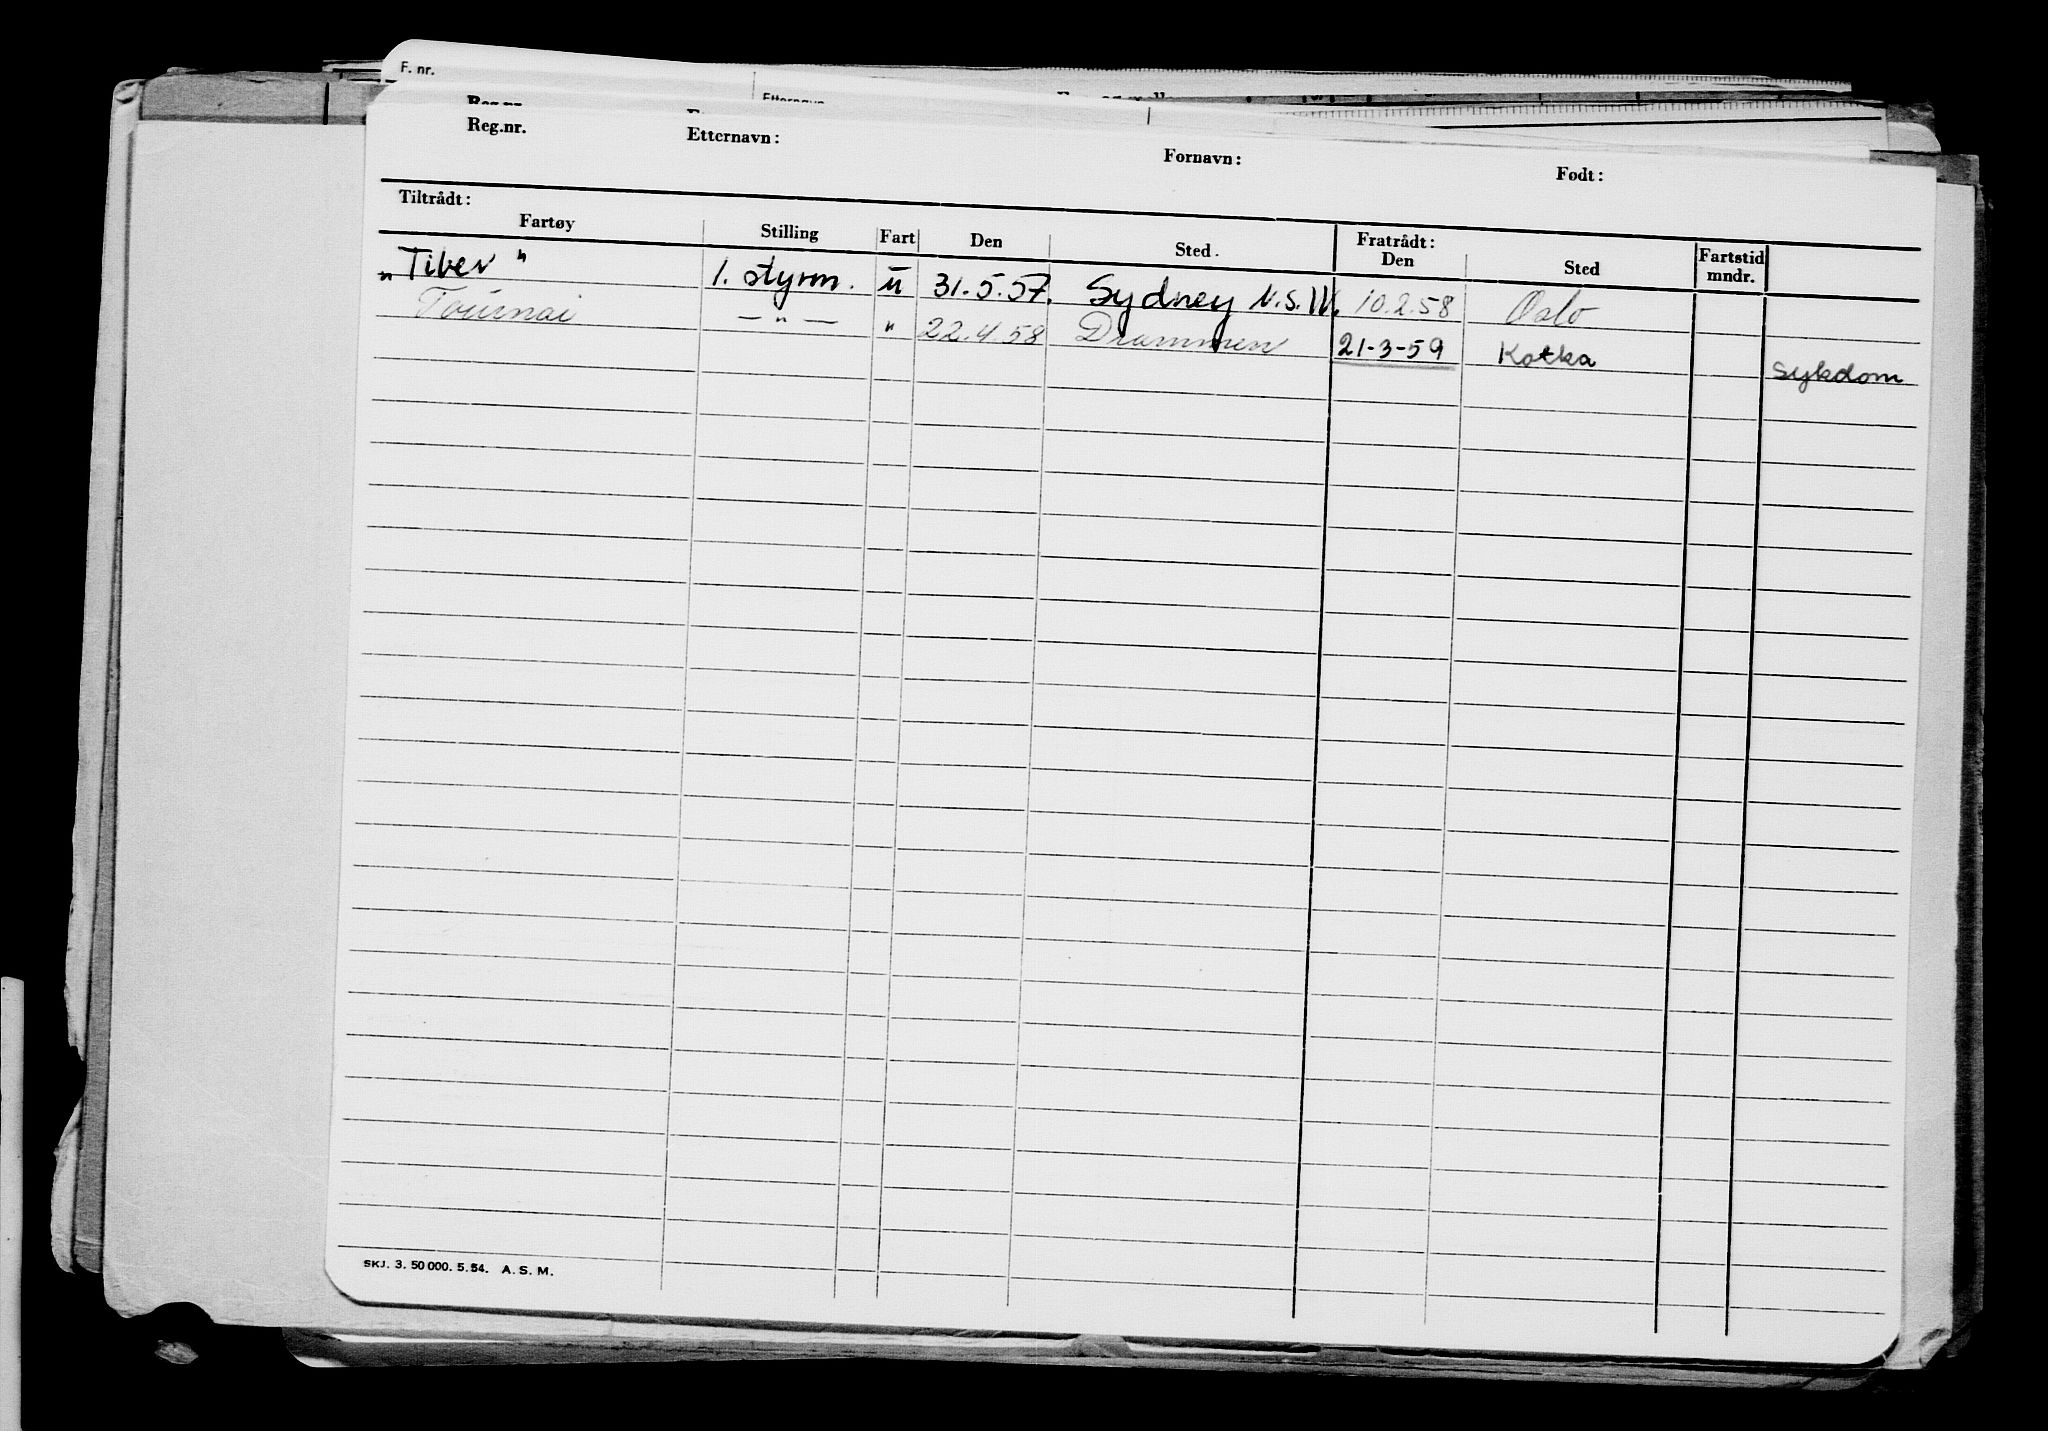 F. nr.
Etternavn
Reg.nr.
Reg.nr. Etternavn: Fornavn: Født:
Tiltrådt: Fratrådt:
Fartøy Stilling Fart Den Sted. Den Sted Fartstid mndr.
"Tiber" 1. styrm. u 31.5.57. Sydney N.S.W. 10.2.58 Oslo
Tournai — " — " 22.4.58 Drammen 21-3-59 Kotka sykdom
SKJ. 3. 50 000. 5.54. A. S. M.